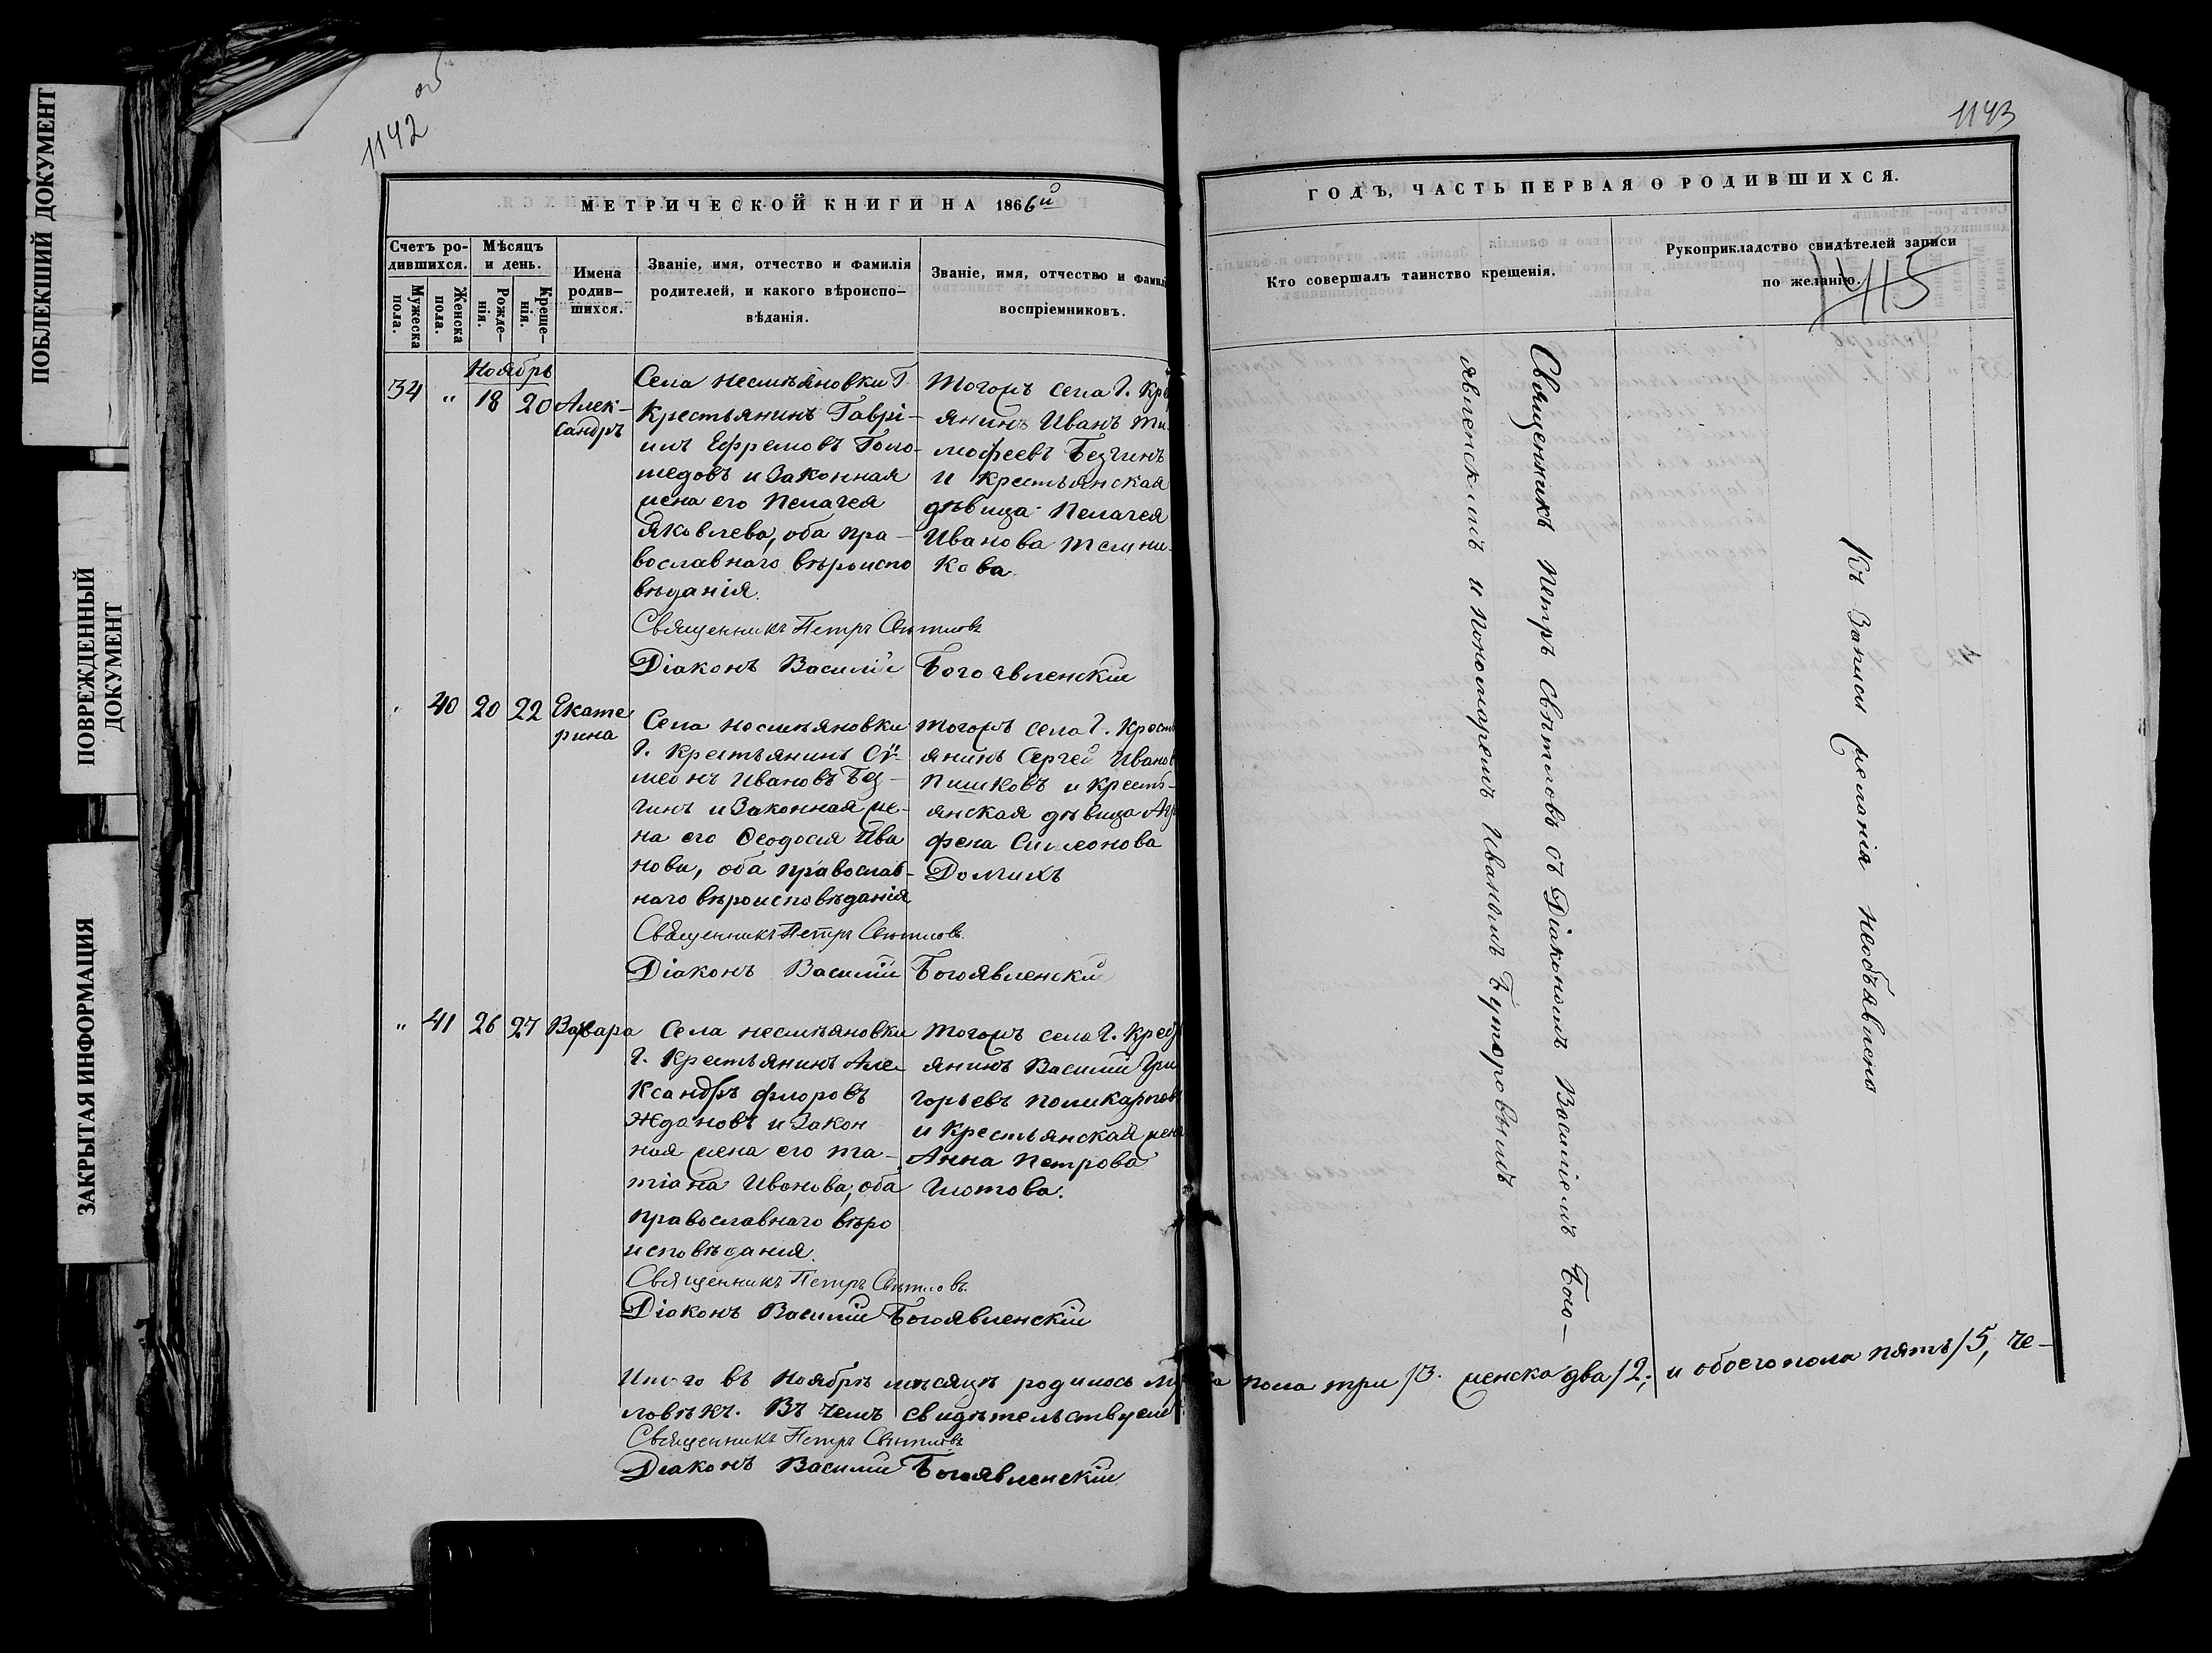 ПОБЛЕКШИЙ ДОКУМЕНТ
ПОВРЕЖДЕННЫЙ
ДОКУМЕНТ
ЗАКРЫТАЯ ИНФОРМАЦИЯ
1142 об
МЕТРИЧЕСКОЙ КНИГИ НА 1866й
Счетъ ро-
дившихся.
Мужеска
пола.
Женска
пола.
Мѣсяцъ
и день.
Рожде-
нія.
Креще-
нія.
Имена
родив-
шихся.
Званіе, имя, отчество и фамилія
родителей, и какого вѣроиспо-
вѣданія.
Званіе, имя, отчество и фамил
воспріемниковъ.
Ноябрь
34 " 18 20 Алек-
сандръ
Села несмѣяновки Г.
Крестьянинъ Гаврі-
илъ Ефремовъ Голо-
шедовъ и Законная
жена его Пелагея
Яковлева, оба пра-
вославнаго вѣроиспо
вѣданія.
Тогожъ села Г. Кре
янинъ Иванъ Ти-
мофеевъ Безгинъ
и крестьянская
дѣвица Пелагея
Иванова Темни-
кова.
Священникъ Петръ Свѣтловъ
Діаконъ Василій Богоявленскій
" 40 20 22 Екате
рина
Села несмѣяновки
Г. Крестьянинъ Сѵ-
меонъ Ивановъ Без-
гинъ и Законная же-
на его Ѳеодосия Ива
нова, оба православ-
наго вѣроисповѣданія
Тогожъ села Г. Кресть
янинъ Сергей Иванов
Пишковъ и крестъ-
янская дѣвица Агр
фена Симеонова
Долгихъ
Священникъ Петръ Свѣтловъ.
Діаконъ Василій Богоявленскій
" 41 26 27 Варвара
Села несмѣяновки
Г. Крестьянинъ Але
ксандръ Флоровъ
Ждановъ и Закон
ная жена его Та-
тіана Иванова, оба
православнаго вѣро
исповѣдания.
Тогожъ села Г. Крес
янинъ Василій Гри
горьевъ Поликарпов
и Крестьянская жен
Анна Петрова
Глотова.
Священникъ Петръ Свѣтловъ.
Діаконъ Василій Богоявленскій
Итого въ Ноябрѣ мѣсяцѣ родилось му ка пола три /3. женска два /2; и обоего пола пять /5, че-
ловѣкъ. Въ чемъ свидѣтельствуем
Священникъ Петръ Свѣтловъ
Діаконъ Василій Богоявленскій
1143
ГОДЪ, ЧАСТЬ ПЕРВАЯ О РОДИВШИХСЯ.
Кто совершалъ таинство крещенія.
Рукоприкладство свидѣтелей записи
по желанію.
1145
Священникъ Петръ Свѣтловъ съ Діакономъ Василіемъ Бого-
явленскимъ и Пономаремъ Иваномъ Буторовымъ
Къ Записи желанія необъявлено